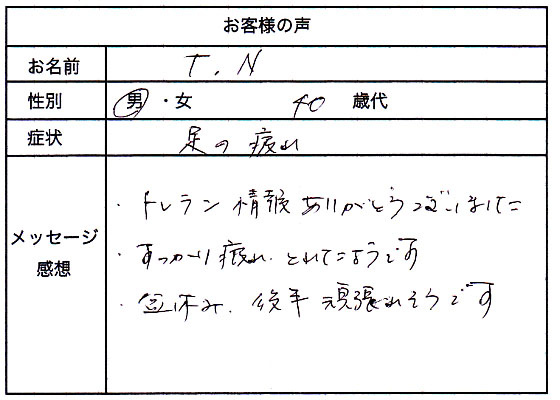 お客様の声
お名前 T.N
性別 男・女 40 歳代
症状 足の疲れ
メッセージ
感想
・トレラン情報ありがとうございました
・すっかり疲れとれたようです
・盆休み、後半頑張れそうです